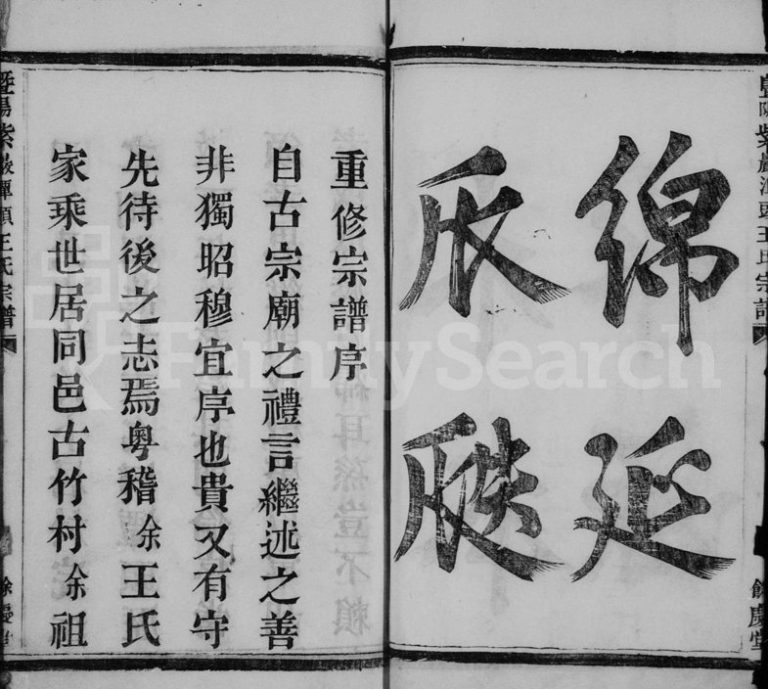 暨陽紫巖頭王氏宗譜
餘慶堂
綿延
瓜瓞
重修宗譜序
自古宗廟之禮言繼述之善
非獨昭穆宜序也貴又有守
先待後之志焉粤稽余王氏
家乘世居同邑古竹村余祖
暨陽紫巖頭王氏宗譜
餘慶堂
FamilySearch